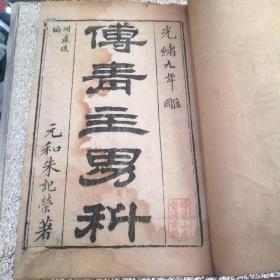 光緒九年雕
傅青主男科
附產後編
元和朱記榮著